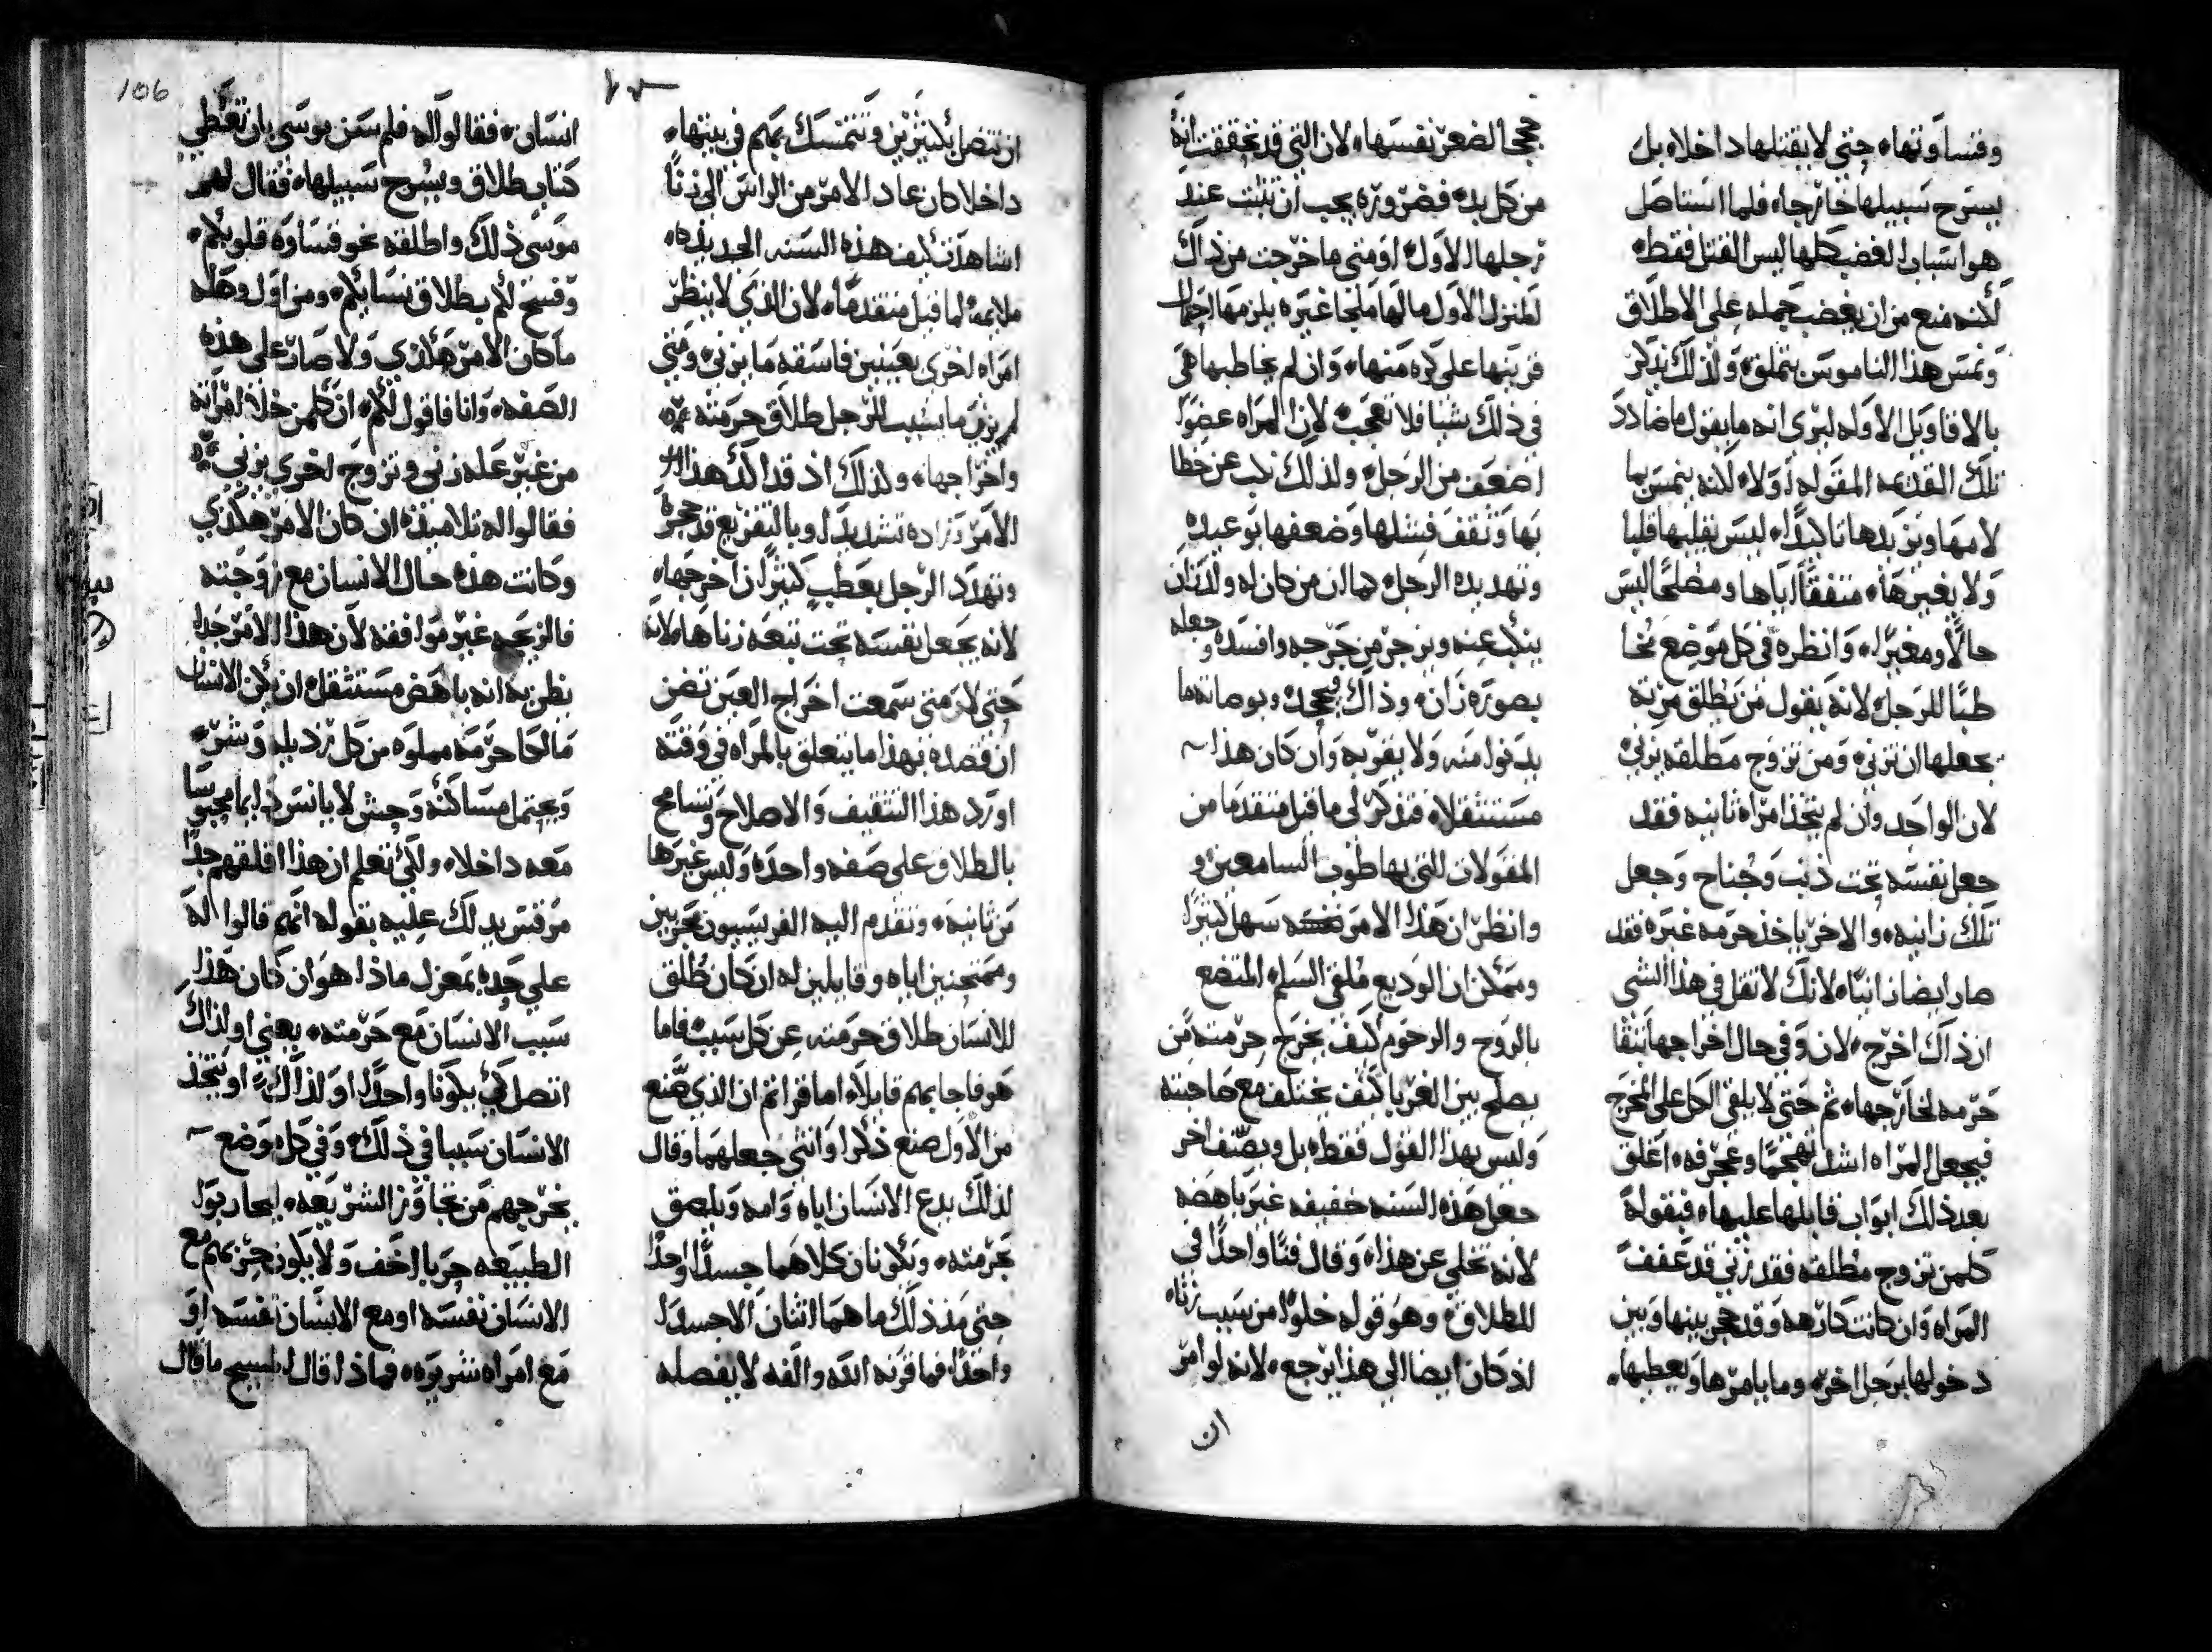 وقساوتها، حتى لا يقتلها داخلا، بل
يسرح سبيلها خارجا، فلما استاصل
هو اسباب الغضب كلها ليس القتل فقط،
لكنه منع من ان يغضب جمله على الاطلاق
وتمس هذا الناموس بتملق، ولذلك يذكر
بالاقاويل الاوله ليرى انه ما يقول ما ضادد
تلك القديمه المقوله اولا، لكنه يتمس بما
لامها ويزيدها تاكيدا، ليس يقلبها قلبا
ولا يغيرها، متفقا اياها ومصلحا ليس
حالا ومغيرا، وانظره في كل موضع نحا
طبا للرجل، لانه يقول من يطلق مرته
يجعلها ان تزني، ومن تزوج مطلقه يزني،
لان الواحد وان لم يتخذ امراه ثانيه فقد
جعل نفسه تحت ذنب وجناح وجعل
تلك زانيه، والاخر ياخذ حرمه غيره فقد
صار ايضا زانيا، لانك لا تقل في هذا الشي
ان ذاك اخرج، لان وفي حال اخراجها تبقا
حرمه لخارجها، ثم حتى لا يلقى الكل على المخرج
فيجعل المراه اشد تهجما وعجرفه، اغلق
بعد ذلك ابواب قابلها عليها، فبقوله
كلمن تزوج مطلقه فقد زنى قد عفف
المراه وان كانت كارهه وقد حجر بينها وبين
دخولها برجل اخر، وما يامرها ويعطيها،
حججا لضعر نفسها، لان التي قد تحققت انه
من كل بد، فضروره يجب ان تثبت عند
رجلها الاول، او متى ما خرجت من ذاك
المنزل الاول ما لها ملجا غيره يلزمها احتمال
قرينها على كره منها، وان لم يخاطبها هي
في ذلك شيا فلا تعجب، لان المراه عضوا
اضعف من الرجل، ولذلك نكب عن خطا
بها وثقف فشلها وضعفها بوعيده
وتهديده الرجل، كما ان من كان له ولد زان
ينكب عنه ويزجر من حرجه وافسده وجعله
بصوره زان، وذاك فيحجده ويوصاته ما
يدنوا منه ولا يقربه وان كان هذا
مستثقلا، فتذكر لي ما قيل متقدما من
المقولات التي بها طوب السامعين، و
وانظر ان هذا الامر سهل كثيرا
وممكن ان الوديع ملقي السلم، المتضع
بالروح والرحوم كيف يخرج حرمته من
يصلح بين الغربا كيف يختلف مع صاحبته
وليس بهذا القول فقط، بل وبصنف اخر
جعل هذه السنه خفيفه غير باهضه
لانه تخلي عن هذا، وقال فنا واحدا في
للطلاق، وهو قوله خلوا من سبب زناه
اذ كان ايضا الى هذا يرجع، لانه لو امر
ان
ان تتصل بكثيرين وتتمسك بهم في بيتها،
داخلا كان عاد الامر من الراس الى زنا
اشاهدت كيف هذه السنه الجديده،
ملايمه لما قيل متقدما، لان الذي لا ينظر
امراه اخرى بعينين فاسقه ما يزني، ومتى
لم يزن ما يسبب للرجل طلاق حرمته
واخراجها، ولذلك اذ قد اكد هذا
الامر وزاده تشديدا، وبالتفزيع قد حجره
وتهدد الرجل بعطب كثير ان اخرجها،
لانه يجعل نفسه تحت تبعه زناها، لانه
حتى لا متى سمعت اخراج العين تضن
ان قصده بهذا ما يتعلق بالمراه في وقته
اورد هذا التثقيف والاصلاح وتسامح
بالطلاق على صفه واحده وليس غيرها
من ثانيه، وتقدم اليه الفريسيون مجربين
وممتحنين اياه وقايلين له ان كان طلق
للانسان طلاق حرمته عن كل سبب، فاما
هو فاجابهم قايلا، اما قراتم ان الذي صنع
من الاول صنع ذكرا وانثى جعلهما وقال
لذلك يدع الانسان اباه وامه ويلصق
بحرمته، ويكونان كلاهما جسدا واحدا
حتى منذ ذلك ما هما اثنان الا جسدا
واحدا، فما قرنه الله والفه لا يفصله
106
انسان، فقالوا له فلم سن موسى بان تعطي
كتاب طلاق ويسرح سبيلها، فقال لهم
موسى ذلك واطلقه نحو قساوة قلوبكم،
وفسح لكم بطلاق نسايكم، ومن اول وهله
ما كان الامر هكذي ولا صار على هذه
الصفه، وانا فاقول لكم، ان كلمن خلا امراته
من غير عله زنى وتزوج اخرى يزني
فقالوا له تلاميذه ان كان الامر هكذي
وكانت هذه حال الانسان مع زوجته
فالزيجه غير موافقه لان هذا الامر جدا
يظن به انه باهض مستثقل، ان يكن الانسان
مالكا حرمه مملوه من كل رذيله وشر،
ويحتمل مساكنه وحش لا يانس دايما محبوسا
معه داخلا، ولكي تعلم ان هذا اقلقهم جدا
مرقس يدلك عليه بقوله انهم قالوا له
على حده بمعزل ماذا هو ان كان هذا
سبب الانسان مع حرمته، يعني او لذاك
اتصل كي يكونا واحدا، او لذاك، او يتخذ
الانسان سببا في ذلك، وفي كل موضع
يخرجهم من تجاوز الشريعه، ليحاربوا
الطبيعه حربا اخف ولا يكون حربهم مع
الانسان نفسه او مع الانسان نفسه او
مع امراه شريره، فماذا قال المسيح ما قال